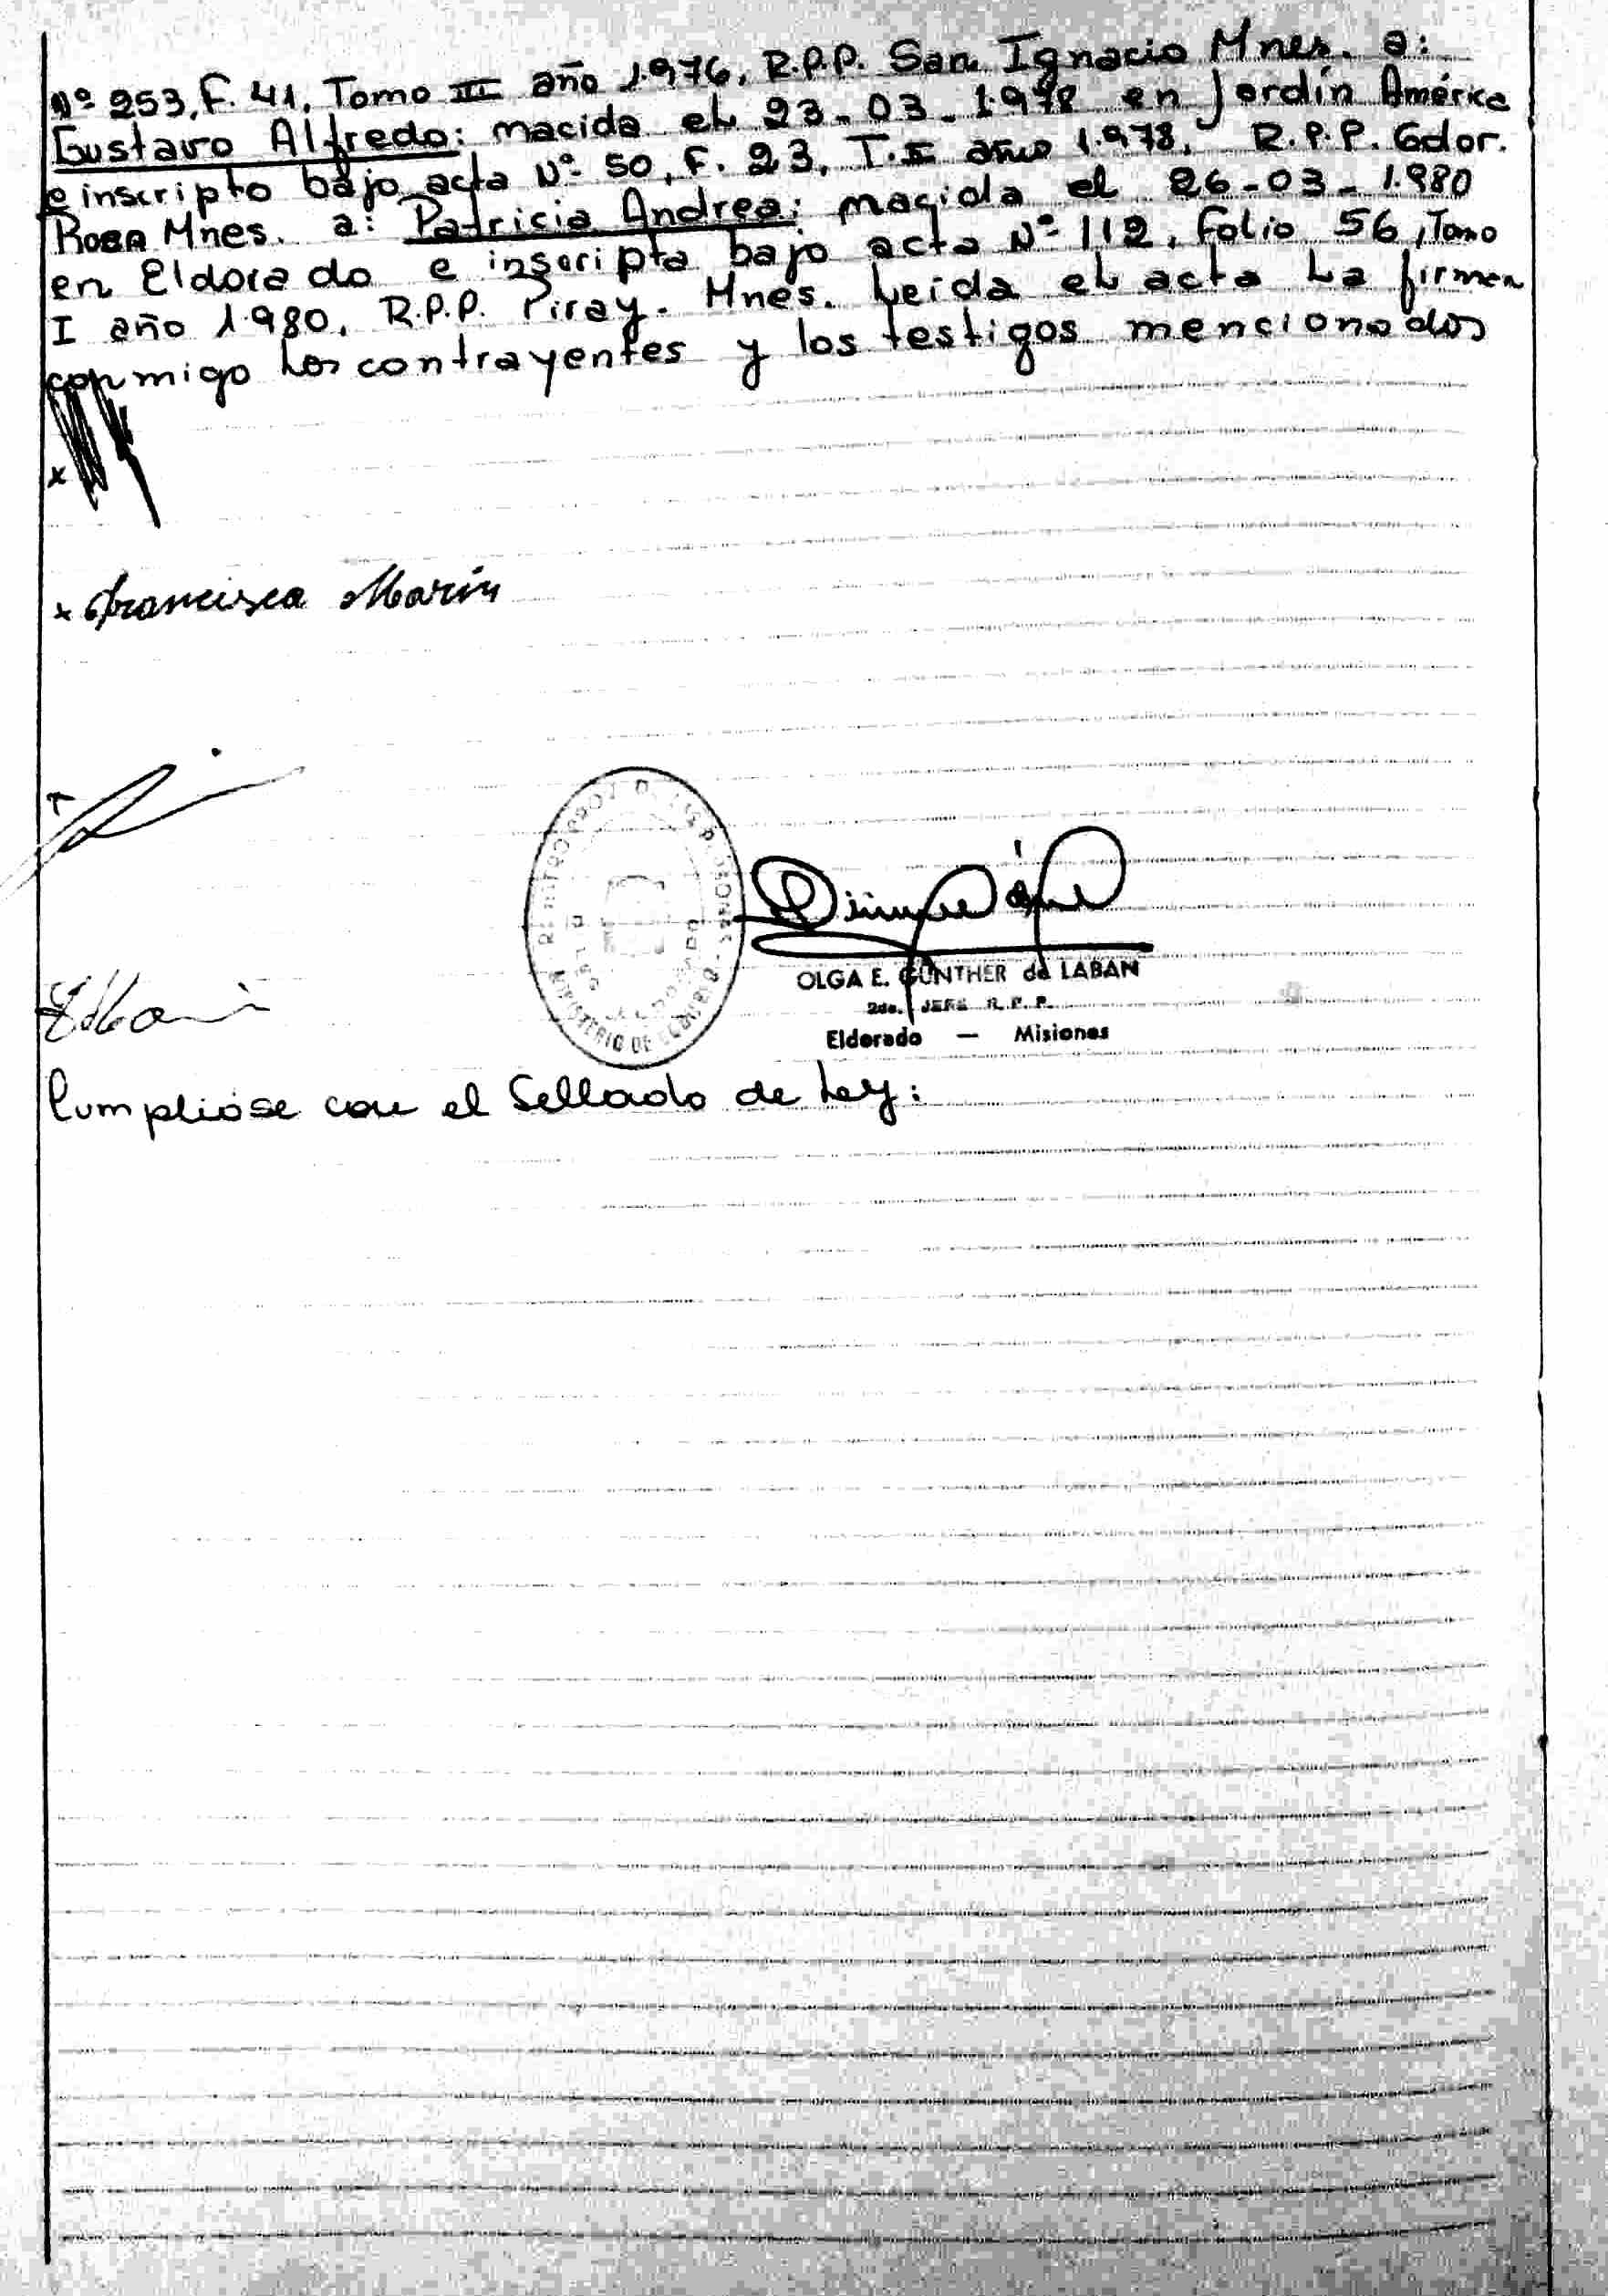 Nº 253, F. 41, Tomo III año 1.976, R.P.P. San Ignacio Mnes. a:
Gustavo Alfredo: nacida el 23-03-1.978 en Jardín América
e inscripto bajo acta Nº 50, F. 23, T. II año 1.978, R.P.P. Gdor.
Roca Mnes. a: Patricia Andrea: nacida el 26-03-1.980
en Eldorado e inscripta bajo acta Nº 112, Folio 56, Tomo
I año 1.980, R.P.P. Piray. Mnes. Leida el acta La firman
conmigo los contrayentes y los testigos mencionados
x
x Francisca Marin
OLGA E. GUNTHER de LABAN
2do. JEFE R. P. P.
Eldorado — Misiones
MINISTERIO DE GOBIERNO
Cumplióse con el Sellado de Ley: